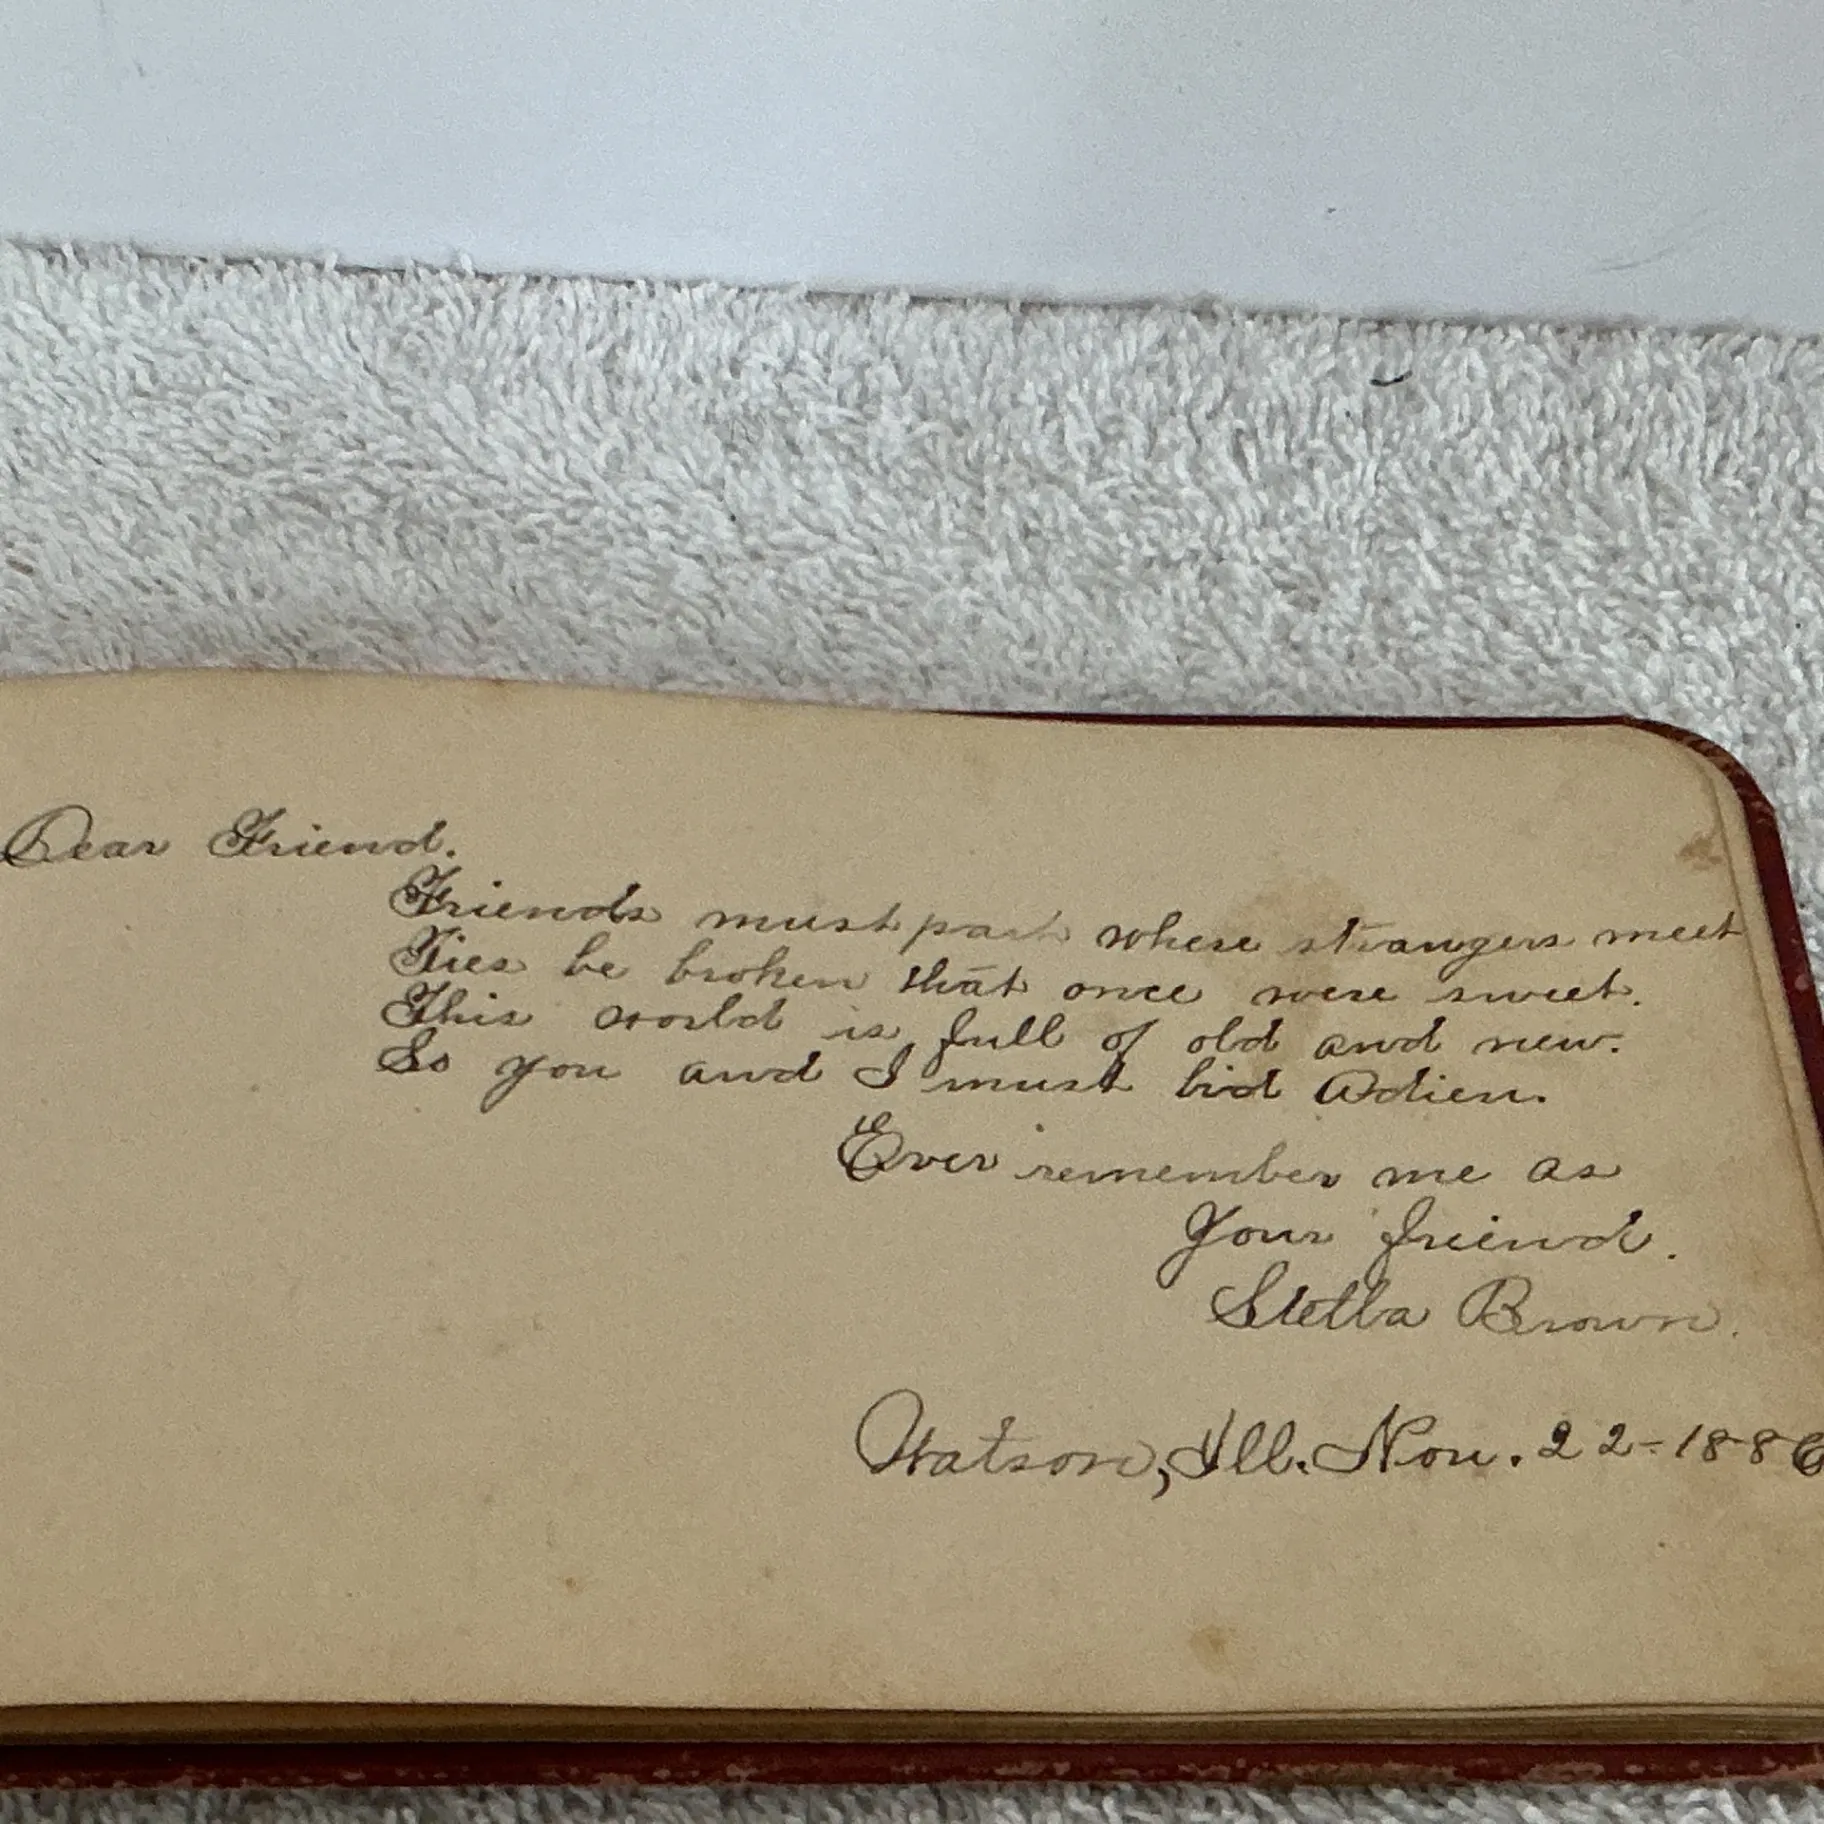 Dear Friend.
Friends must part where strangers meet
Ties be broken that once were sweet.
This world is full of old and new.
So you and I must bid Adieu.
Ever remember me as
Your friend.
Stella Brown.
Watson, Ill. Nov. 22-1886